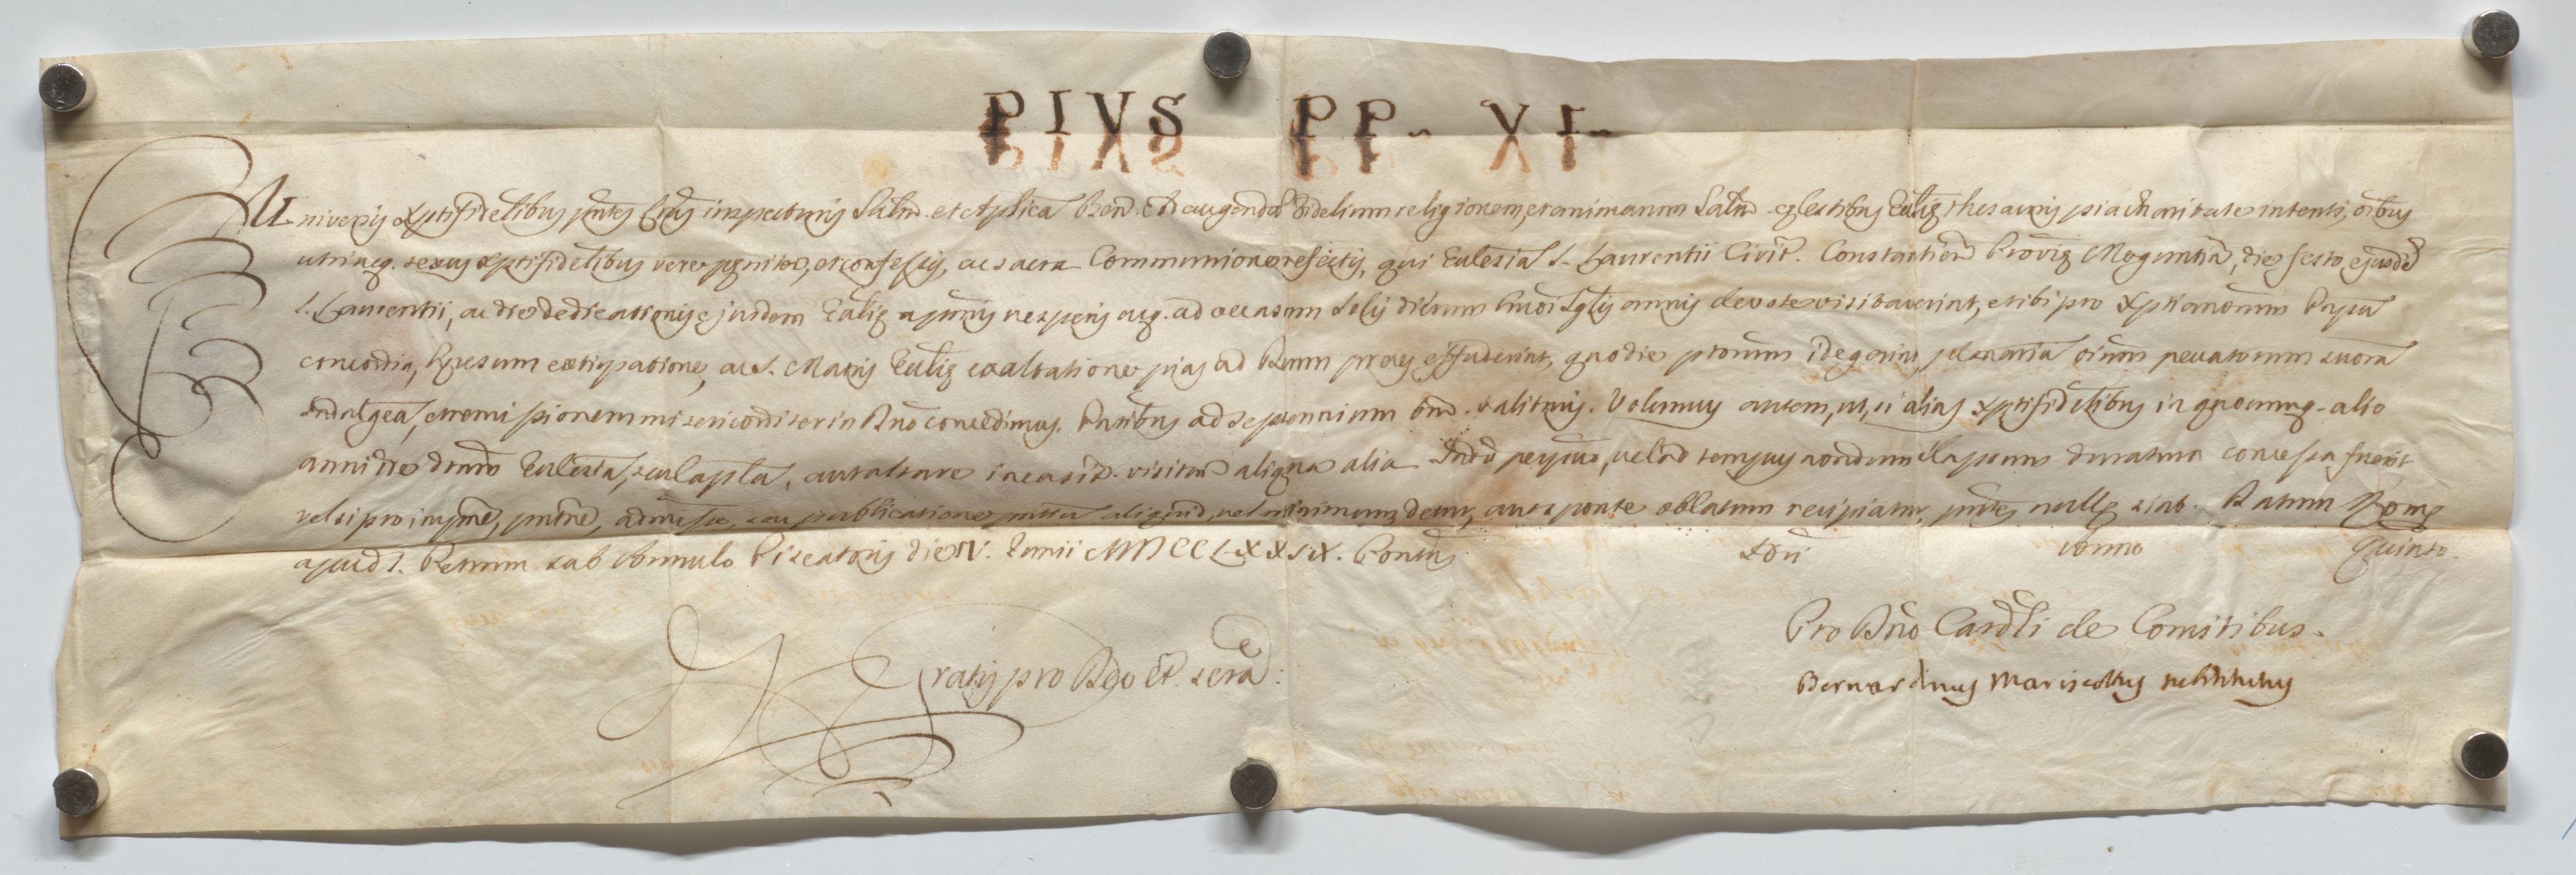 PIVS PP. VI.
Universis Xptifidelibus pntes Lras inspecturis Salm̃ et Aplicã Beñ. Ad augendã Fidelium religionem, et animarum Salm̃ cælestibus Ecclię thesauris pia charitate intenti, oĩbus
utriusq. sexus Xptifidelibus vere pęnitẽ, et confessis, ac sacra Communione refectis, qui Ecclesiã S. Laurentii Civit̃. Constantieñ Provię Moguntiñ, die festo ejusdẽ
S. Laurentii, ac die dedicationis ejusdem Ecclię a primis vesperis usq. ad occasum Solis dierum hmõi sglis annis devote visitaverint, et ibi pro Xptianorum Prpum
concordia, hęresum extirpatione, ac S. Matris Ecclię exaltatione pias ad Deum preces effuderint, quo die prorum id egerint, plenariã oĩum peccatorum suorũ
Indulgeã, et remissionem misericorditer in Dño concedimus. Pñtibus ad Septennium tm̃. valituris. Volumus autem, ut, si alias Xptifidelibus in quocumq. alio
anni die dictam Ecclesiã, seu Capllã, aut altare in ea sit̃. visitañ aliqua alia Indul̃ perpuo, vel ad tempus nondum elapsum duratura concessa fuerit
vel si pro impnẽ, pntnẽ, admissnẽ, seu publicatione pntium aliquid, vel minimum detur, aut sponte oblatum recipiatur, pntes nullę sint. Datum Romę
apud S. Petrum sub Annulo Piscatoris die IV. Junii MDCCLXXIX. Pontus Nri Anno Quinto.
Gratis pro Deo et scrã:
Pro Dño Cardli de Comitibus.
Bernardinus Mariscottus substitutus